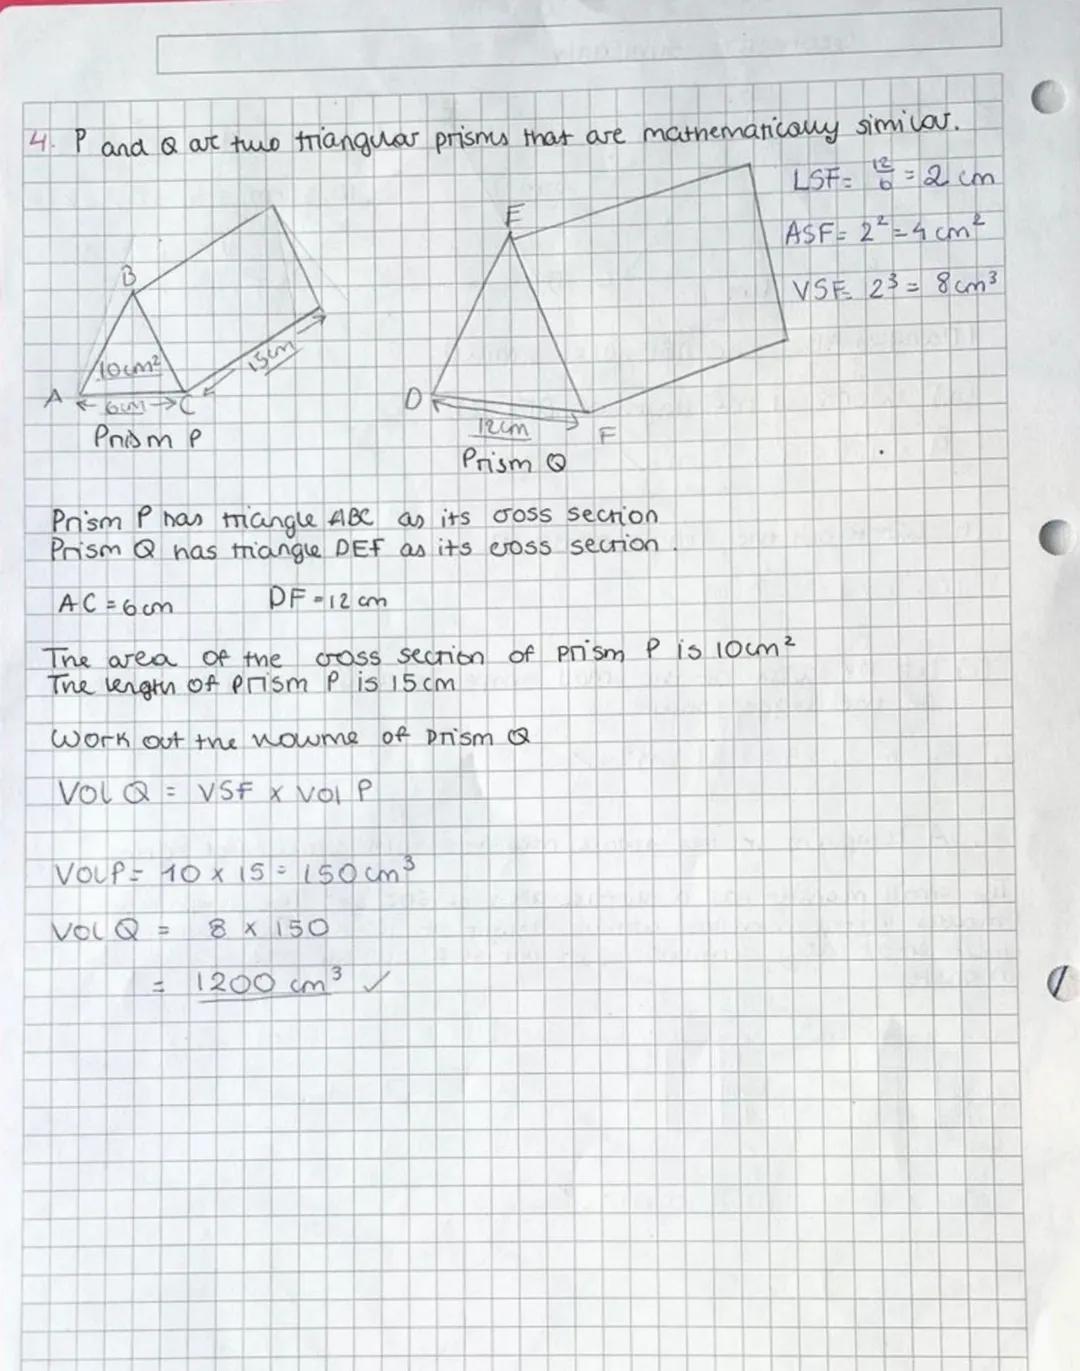 4. P and Q are two triangular prisms that are mathematically similar.
LSF= 12/6 = 2 cm
ASF= 2² = 4 cm²
VSF= 2³ = 8cm³
B
10cm²
A
6cm
C
15cm
Prism P
E
D
12cm
F
Prism Q
Prism P has triangle ABC as its cross section
Prism Q has triangle DEF as its cross section.
AC = 6cm DF = 12 cm
The area of the cross section of prism P is 10cm²
The length of prism P is 15cm
Work out the volume of prism Q
VOL Q = VSF x Vol P
VOLP = 10 x 15 = 150cm³
VOL Q = 8 x 150
= 1200 cm³ ✓